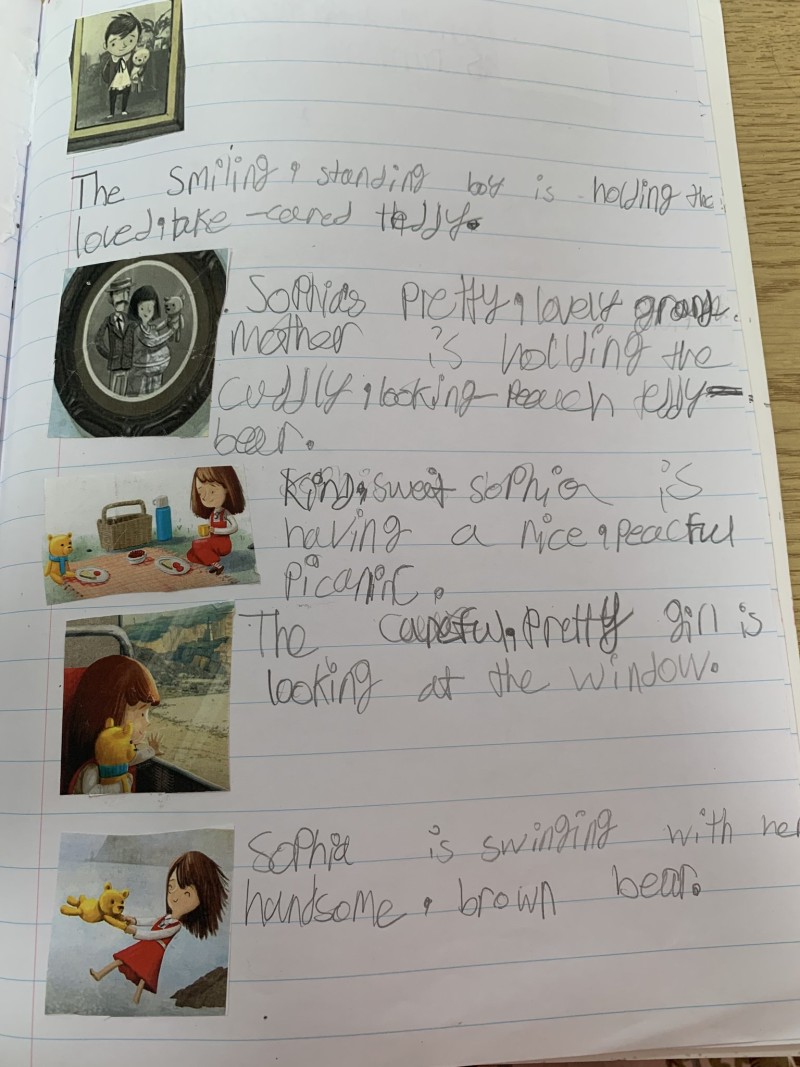 The smiling, standing boy is holding the
loved, take-cared teddy.
Sophia's pretty, lovely grand
mother is holding the
cuddly, looking-peach teddy
bear.
Kind, sweet sophia is
having a nice, peacful
picanic.
The careful, pretty girl is
looking at the window.
Sophia is swinging with her
handsome, brown bear.